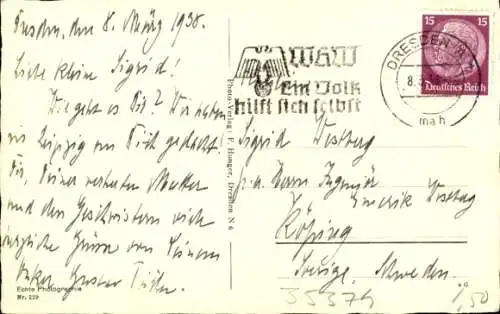 Dresden, den 8. März 1938.
Liebe kleine Sigrid!
Wie geht es Dir? Wir haben
in Leipzig an Dich gedacht!
Dir, Deiner verehrten Mutter
und den Geschwistern viele
herzliche Grüsse von Deinem
Onkel Gustav
Echte Photographie
Nr. 229
Photo-Verlag: F. Hanger, Dresden N 6
WHW
Ein Volk
hilft sich selbst
DRESDEN
8.3.
mah
15 15
Deutsches Reich
Sigrid Westberg
Herrn Ingenjör
Westberg
Köping
Sverige, Schweden.
35374